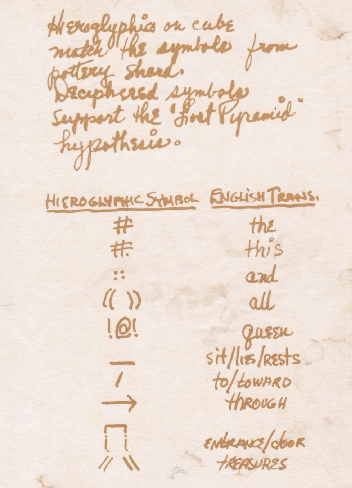 Hieroglyphics on cube
match the symbols from
pottery shard.
Deciphered symbols
support the "Lost Pyramid"
hypothesis.
HIEROGLYPHIC SYMBOL ENGLISH TRANS.
# the
#. this
:: and
(( )) all
!@! queen
— sit/lies/rests
/ to/toward
→ through
entrance/door
// \\ treasures